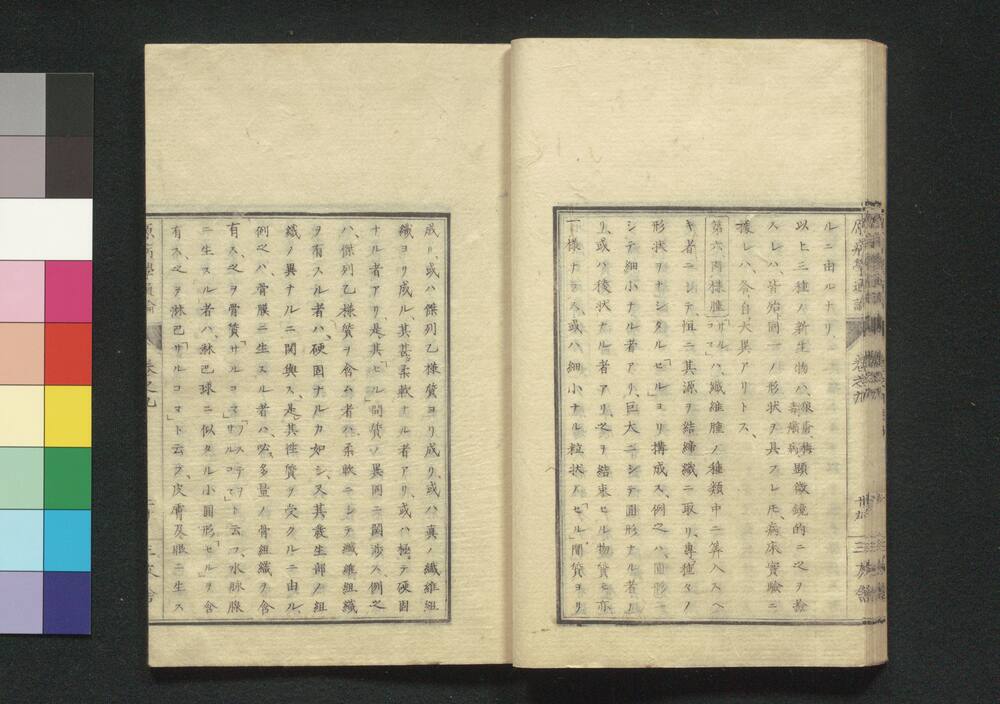 原病學通論 卷之九 卅九 三友舍
ルニ由ルナリ、
以上三種ノ新生物ハ、狼瘡、梅毒、癩病、顯微鏡的ニ之ヲ撿
スレハ、皆殆同一ノ形狀ヲ具フレ𪜈、病床實驗ニ
據レハ、各自大異アリトス、
第六肉樣腫「サルコマ」ハ、纖維腫ノ種類中ニ算入スヘ
キ者ニシテ、恒ニ其源ヲ結締織ニ取リ、專種々ノ
形狀ヲナシタル「セル」ヨリ構成ス、例之ハ、圓形ニ
シテ細小ナル者アリ、巨大ニシテ圓形ナル者ア
リ、或ハ稜狀ナル者アリ、之ヲ結束セル物質モ亦
一樣ナラス、或ハ細小ナル粒狀ノ「セル」間質ヨリ
成リ、或ハ傑列乙樣質ヨリ成リ、或ハ眞ノ纖維組
織ヨリ成ル、其甚柔軟ナル者アリ、或ハ極テ硬固
ナル者アリ、是其「セル」間質ノ異同ニ關涉ス、例之
ハ、傑列乙樣質ヲ含ム者ハ、柔軟ニシテ纖維組織
ヲ有スル者ハ、硬固ナルカ如シ、又其發生部ノ組
織ノ異ナルニ関與ス、是其性質ヲ受クルニ由ル、
例之ハ、骨膜ニ生スル者ハ、必多量ノ骨組織ヲ含
有ス、之ヲ骨質「サルコマ」「ヲステヲサルコマ」ト云フ、水脉腺
ニ生スル者ハ、淋巴球ニ似タル小圓形「セル」ヲ含
有ス、之ヲ淋巴「サルコマ」ト云フ、皮膚及眼ニ生ス
原病學通論 卷之九 三友舍